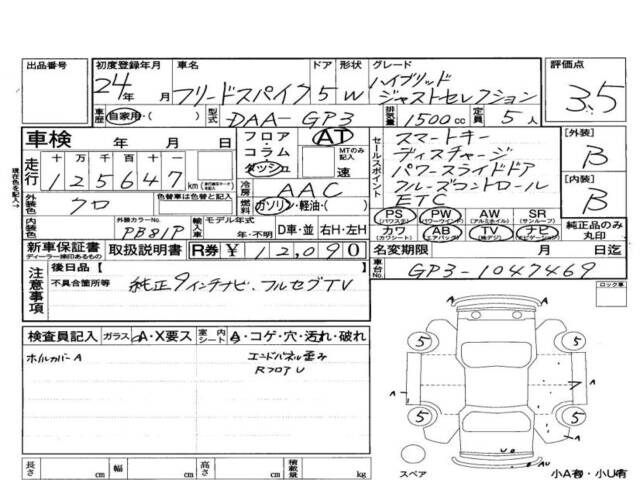 出品番号
初度登録年月
24年 月
車名
フリードスパイク
ドア 形状
5 W
グレード
ハイブリッド
ジャストセレクション
評価点
3.5
車歴 自家用・( )
型式 DAA-GP3
排気量 1500cc
定員 5人
車検 年 月 日
フロア・コラム・ダッシュ
AT
MTのみ記入
速
セールスポイント
スマートキー
ディスチャージ
パワースライドドア
クルーズコントロール
ETC
[外装]
B
[内装]
B
現在色を記入→
走行
十 万 千 百 十 一
125647 km
冷房 AAC
燃料 ガソリン・軽油・( )
外装色 クロ
色替車は色替と記入
内装色
外装カラーNo.
PB81P
輸入車
モデル年式
年・不明
D車・並 右H・左H
PS (パワステ)
PW (パワーウインド)
AW (アルミホイル)
SR (サンルーフ)
カワ (カワシート)
AB (エアバッグ)
TV (地デジ)
ナビ (ナビゲーション)
純正品のみ丸印
新車保証書
ディーラー捺印あるもの
取扱説明書
R券 ¥12,090
名変期限 月 日迄
車台No. GP3-1047469
注意事項
後日品【 】
不具合箇所等
純正9インチナビ、フルセグTV
ロック車
検査員記入
ガラス A・X要ス
室内シート A・コゲ・穴・汚れ・破れ
ホイルカバーA
エンドパネル歪み
RフロアU
5 5
A A
5 5
U
AU
スペア
小A有・小U有
長さ cm
幅 cm
高さ cm
積載量 kg